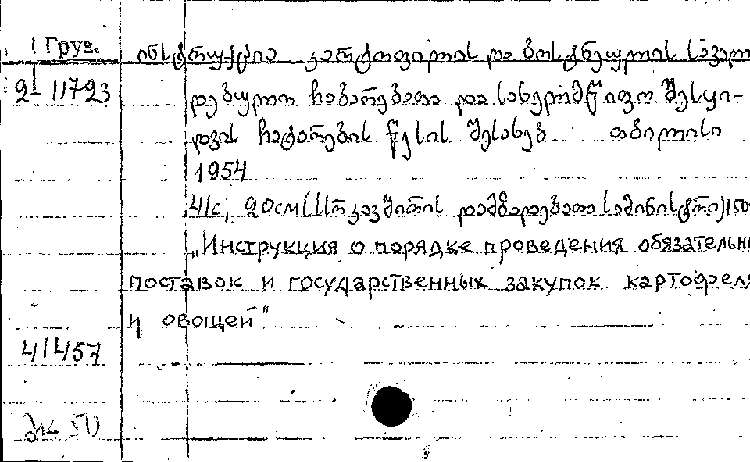 Груз.
2-11723
ინსტრუქცია კარტოფილის და ბოსტნეულის სავალ
დებულო ჩაბარებათა და სახელმწიფო შესყი-
დვის ჩატარების წესის შესახებ თბილისი
1954
41с, 20см (სსრ კავშირის დამზადებათა სამინისტრო) 150
„Инструкция о порядке проведения обязательн
поставок и государственных закупок картофел
и овощей"
41457